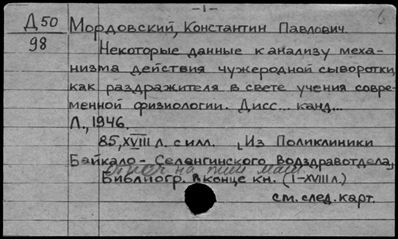 – 1 –
Д 50
98
Мордовский, Константин Павлович.
Некоторые данные к анализу меха-
низма действия чужеродной сыворотки,
как раздражителя в свете учения совре-
менной физиологии. Дисс... канд...
Л., 1946.
85, XVIII л. с илл. Из Поликлиники
Байкало-Селенгинского Водздравотдела,
на пиш маш
Библиогр. в конце кн. (I-XVIII л.)
см. след. карт.